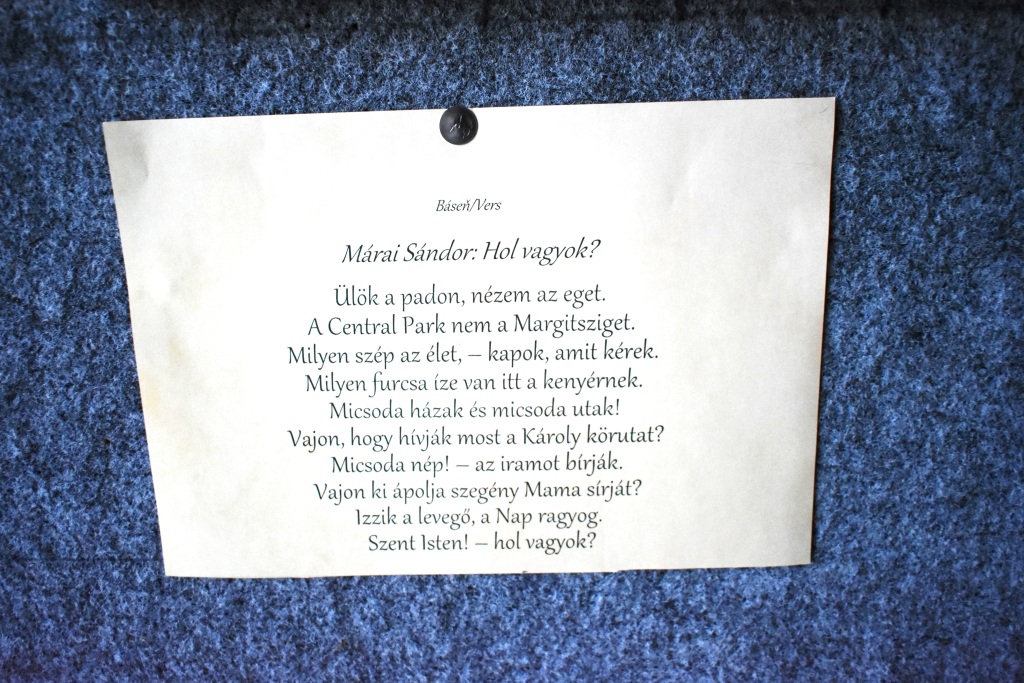 Báseň/Vers
Márai Sándor: Hol vagyok?
Ülök a padon, nézem az eget.
A Central Park nem a Margitsziget.
Milyen szép az élet, – kapok, amit kérek.
Milyen furcsa íze van itt a kenyérnek.
Micsoda házak és micsoda utak!
Vajon, hogy hívják most a Károly körutat?
Micsoda nép! – az iramot bírják.
Vajon ki ápolja szegény Mama sírját?
Izzik a levegő, a Nap ragyog.
Szent Isten! – hol vagyok?